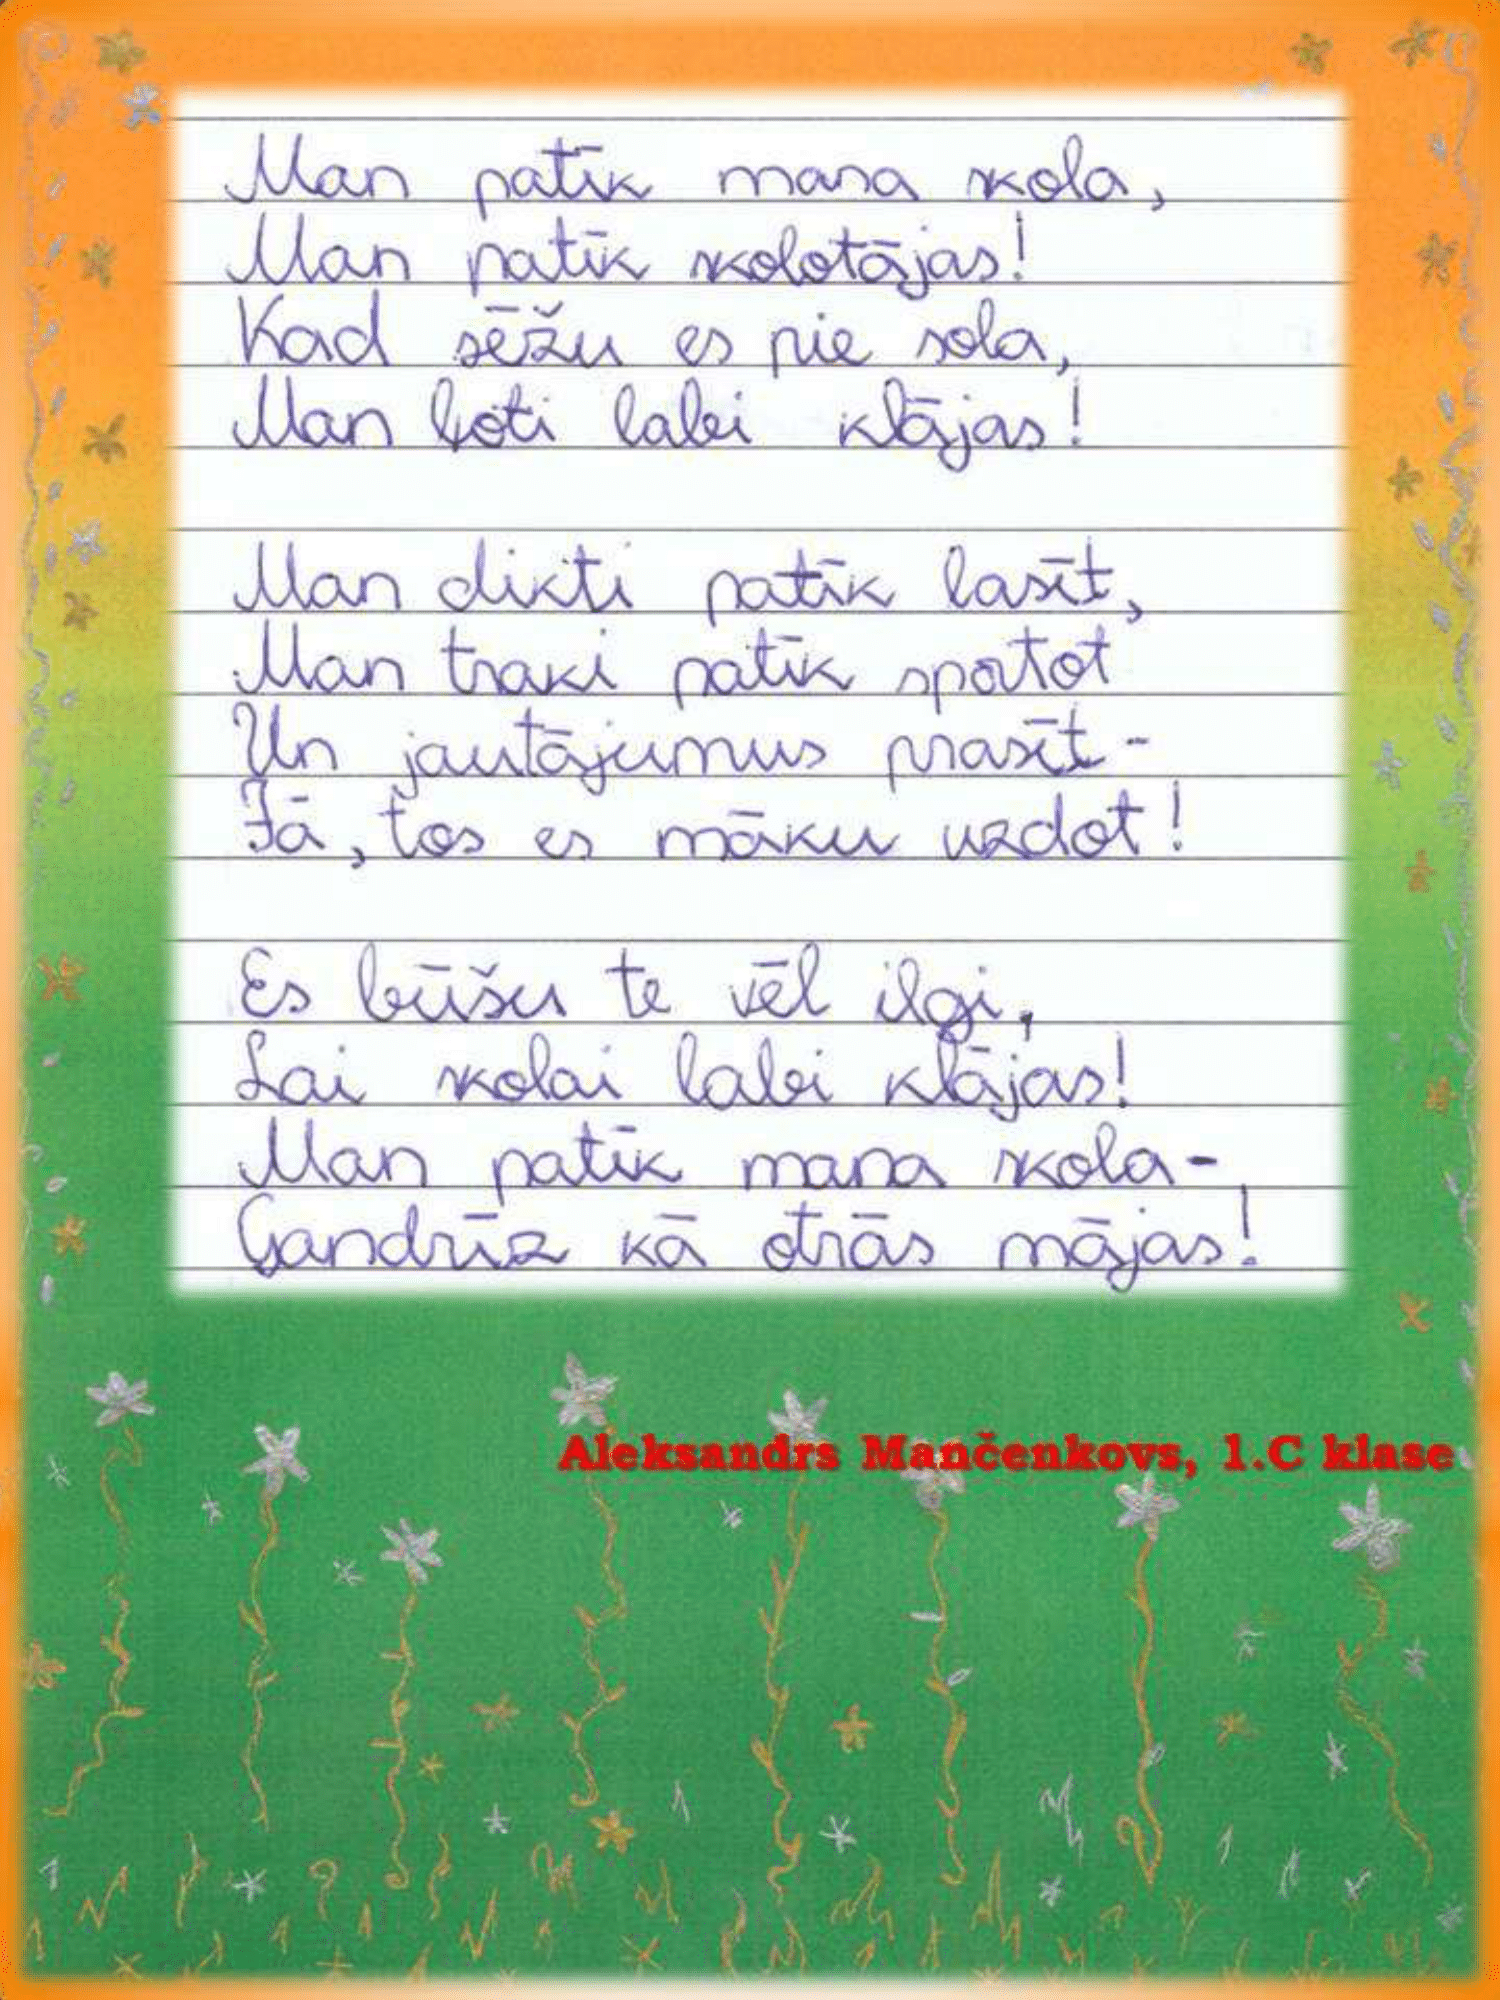 Man patīk mana skola,
Man patīk skolotājas!
Kad sēžu es pie sola,
Man ļoti labi klājas!
Man dikti patīk lasīt,
Man traki patīk sportot
Un jautājumus prasīt -
Jā, tos es māku uzdot!
Es būšu te vēl ilgi,
Lai skolai labi klājas!
Man patīk mana skola -
Gandrīz kā otrās mājas!
Aleksandrs Mančenkovs, 1.C klase